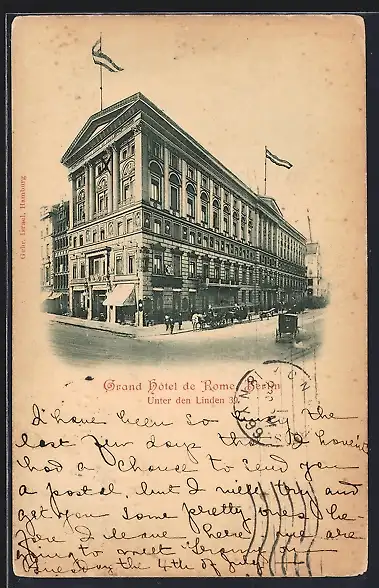 Gebr. Israel, Hamburg
Grand Hôtel de Rome, Berlin
Unter den Linden 39.
I have been so busy the
last few days that I haven't
had a chance to send you
a postal, but I will try and
get you some pretty ones be
fore I leave here we are
going to meet on
Tuesday the 4th of July